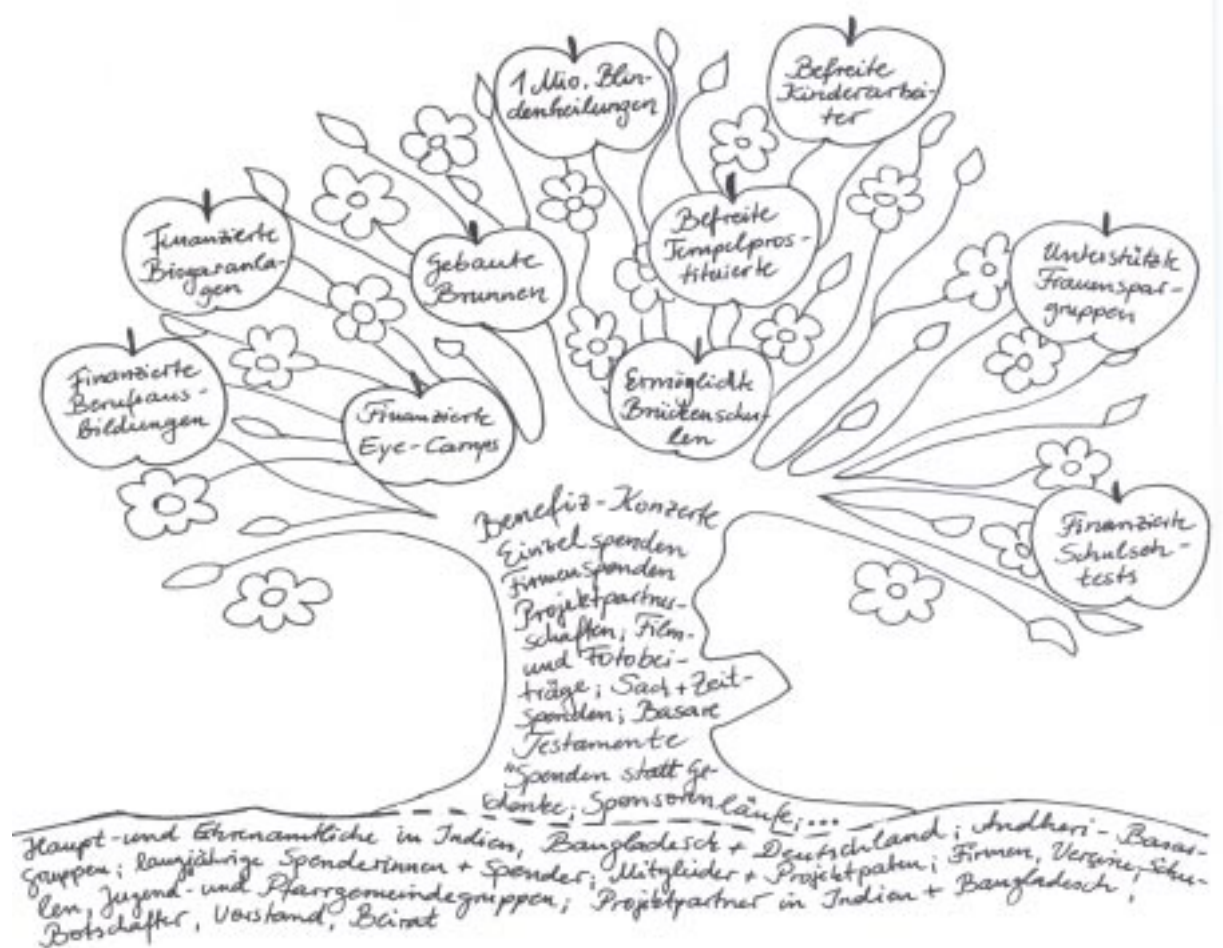 1 Mio. Blin-
denheilungen
Befreite
Kinderarbei-
ter
Finanzierte
Biogasanla-
gen
Gebaute
Brunnen
Befreite
Tempelpros-
tituierte
Unterstützte
Frauenspar-
gruppen
Finanzierte
Berufsaus-
bildungen
Finanzierte
Eye-Camps
Ermöglichte
Brückenschu-
len
Finanzierte
Schulseh-
tests
Benefiz-Konzerte
Einzelspenden
Firmenspenden
Projektpartner-
schaften; Film-
und Fotobei-
träge; Sach + Zeit-
spenden; Basare
Testamente
"Spenden statt Ge-
schenke; Sponsorenläufe;...
Haupt- und Ehrenamtliche in Indien, Bangladesch + Deutschland; Andheri-Basar-
gruppen; langjährige Spenderinnen + Spender; Mitglieder + Projektpaten; Firmen, Vereine, Schu-
len, Jugend- und Pfarrgemeindegruppen; Projektpartner in Indien + Bangladesch;
Botschafter, Vorstand, Beirat